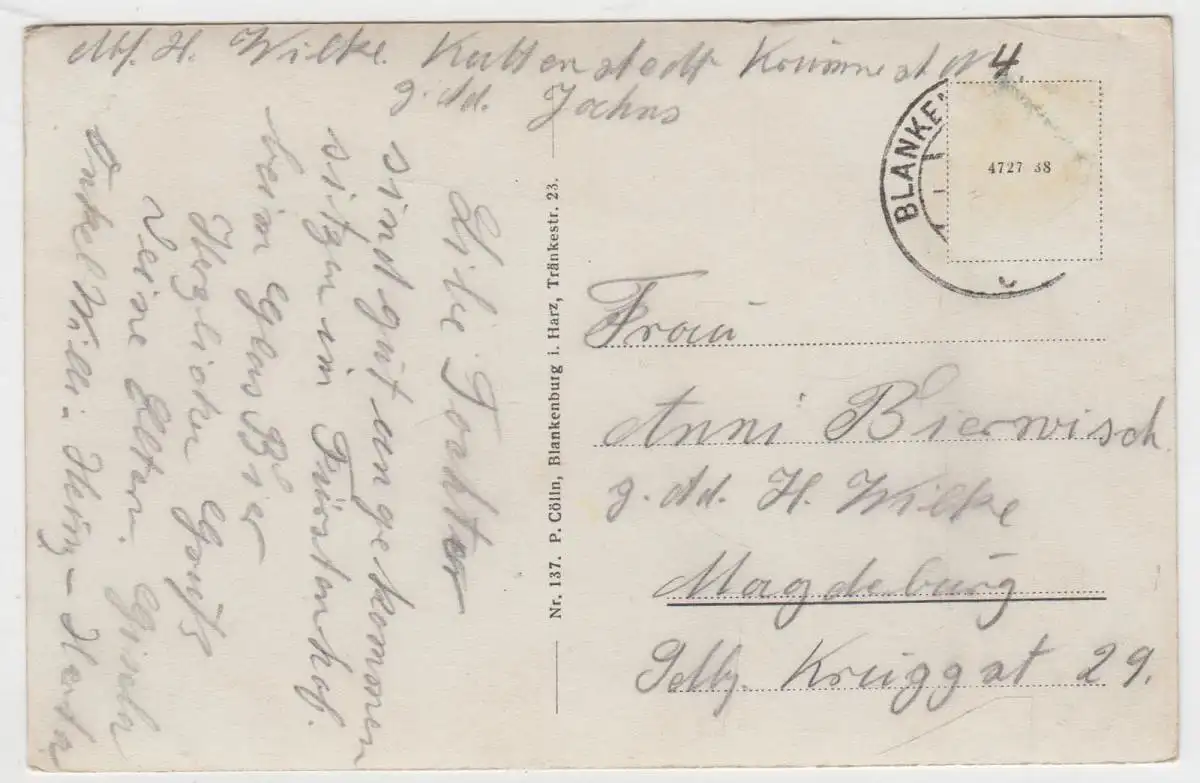 Abs. H. Wilke. Kattenstedt Krummest N 4.
z. Zd. Jochns
Liebe Tochter
sind gut angekommen
sitzen im Fürstenhof.
beim Glas Bier
Herzlichen Gruß
Deine Eltern. Gisela
Onkel Willi - Heinz - Herta
Nr. 137. P. Cölln, Blankenburg i. Harz, Tränkestr. 23.
BLANKEN
4727 38
Frau
Anni Bierwisch
z. Zd. H. Wilke
Magdeburg
Kruggst 29.